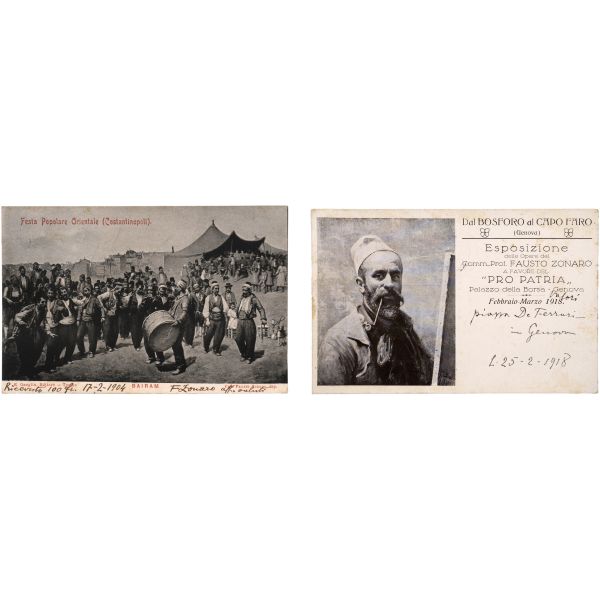 Festa Popolare Orientale (Costantinopoli).
BAIRAM
Ricevuto 100 fr. 17-2-1904 F. Zonaro
Dal BOSFORO al CAPO FARO
(Genova)
Esposizione
delle Opere del
Comm. Prof. FAUSTO ZONARO
A FAVORE DEL
"PRO PATRIA„
Palazzo della Borsa - Genova
Febbraio-Marzo 1918.
piazza De Ferrari
in Genova
L. 25-2-1918